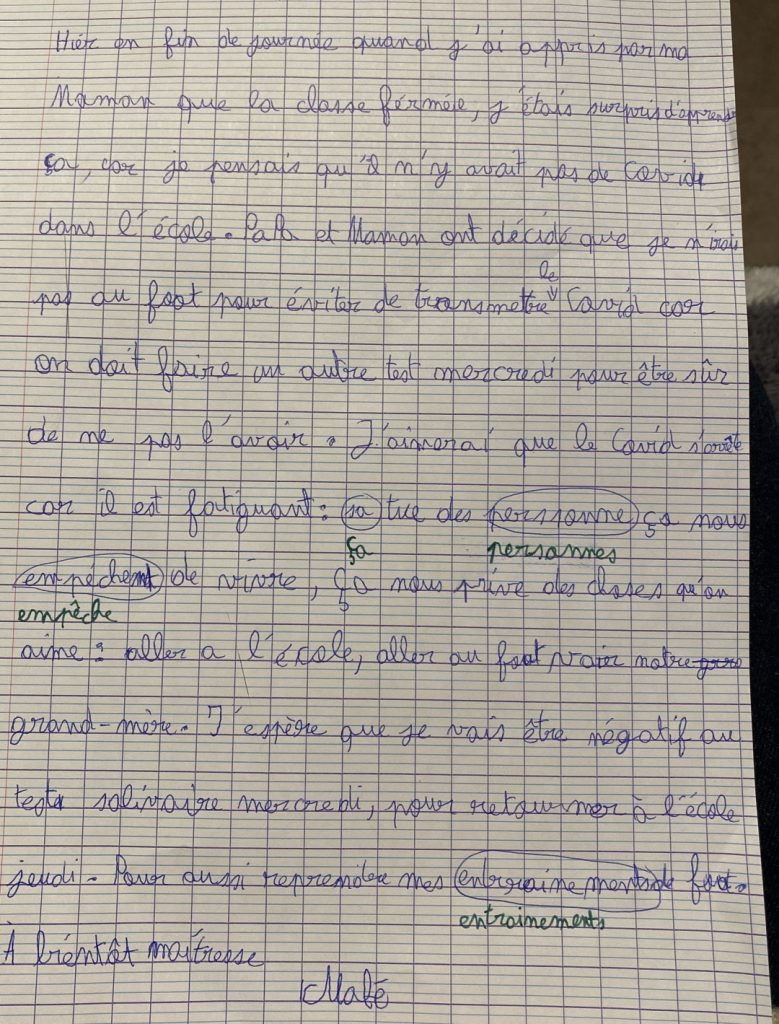 Hier en fin de journée quand j'ai appris par ma
Maman que la classe férmée, j'étais surpris d'apprendre
ça, car je pensais qu'il n'y avait pas de Covid
dans l'école. Papa et Maman ont décidé que je n'irai
le
pas au foot pour éviter de transmettre Covid car
on doit faire un autre test mercredi pour être sûr
de ne pas l'avoir. J'aimerai que le Covid s'arrête
car il est fatiguant : sa tue des personne ça nous
ça personnes
empéchent de vivre, ça nous prive des choses qu'on
empêche
aime : aller a l'école, aller au foot voir notre
grand-mère. J'espère que je vais être négatif au
test salivaire mercredi, pour retourner à l'école
jeudi. Pour aussi reprendre mes entrainements de foot.
entrainements
À bientôt maîtresse